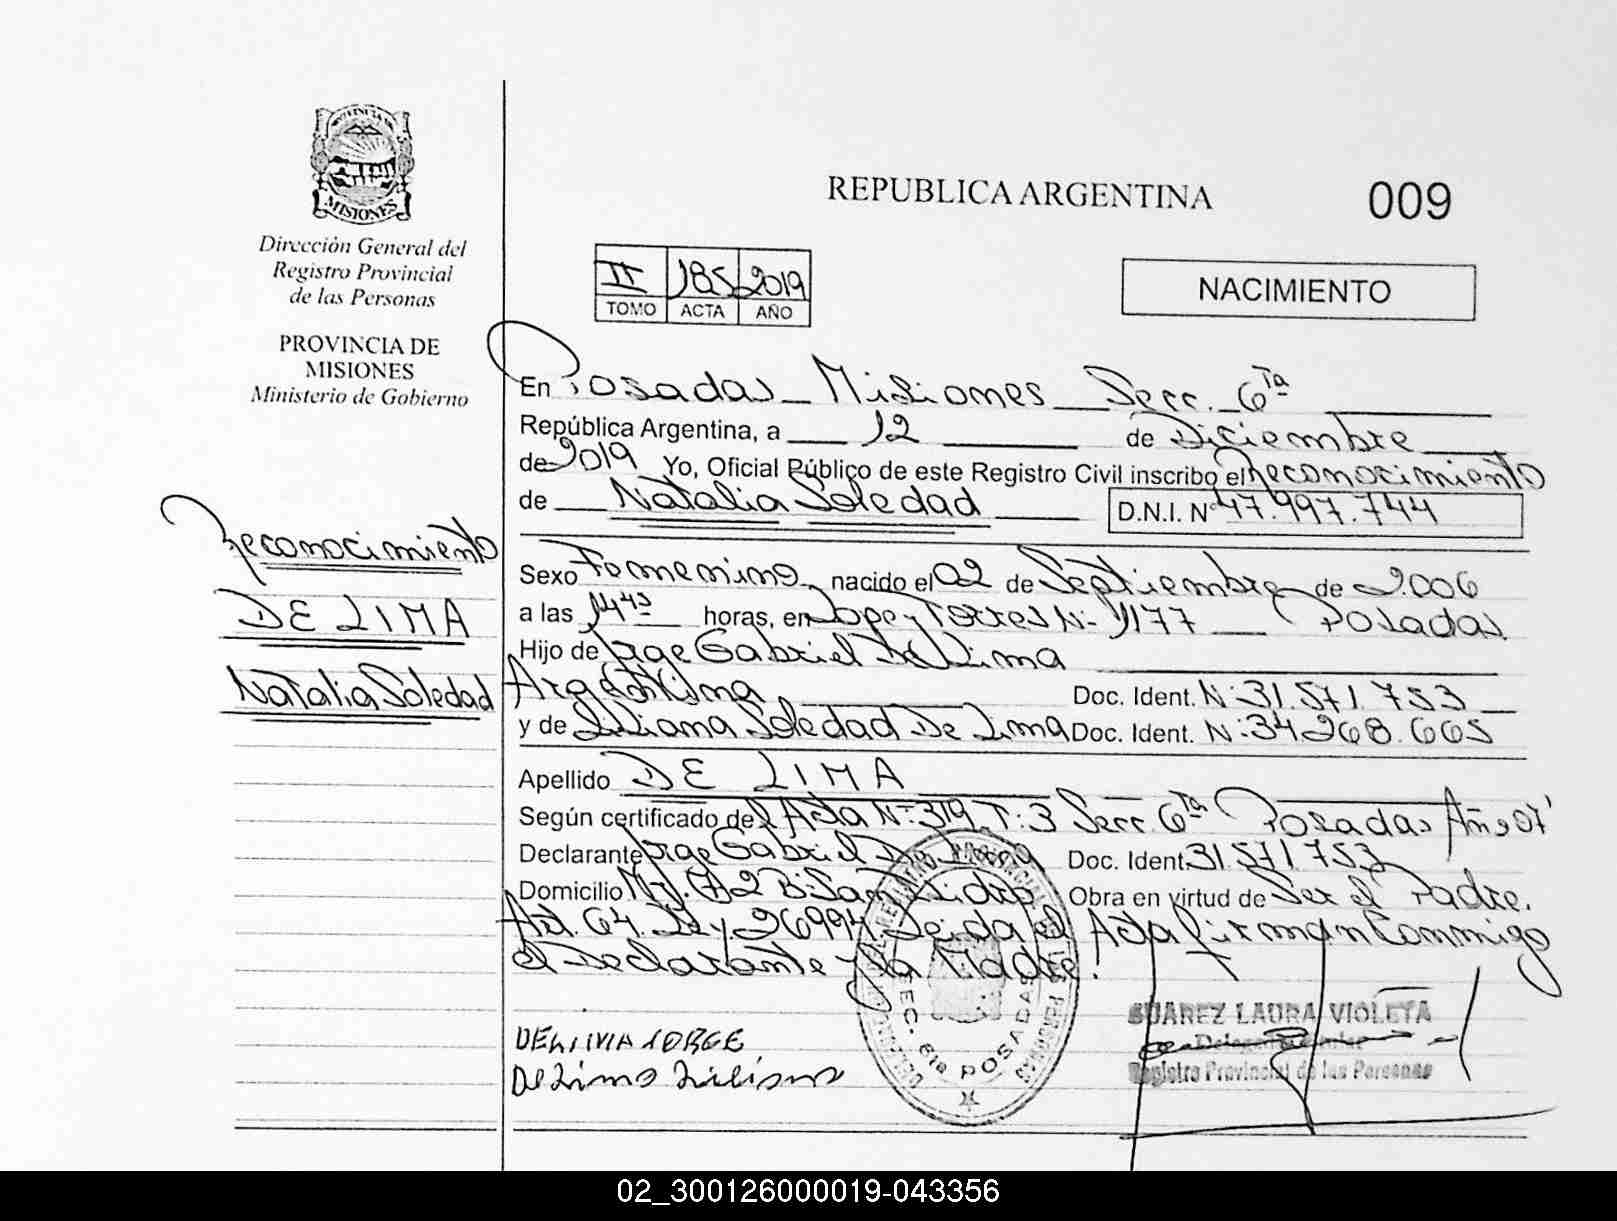 MISIONES
Dirección General del
Registro Provincial
de las Personas
PROVINCIA DE
MISIONES
Ministerio de Gobierno
Reconocimiento
DE LIMA
Natalia Soledad
REPUBLICA ARGENTINA 009
II 185 2019
TOMO ACTA AÑO
NACIMIENTO
En Posadas Misiones Secc. 6ta
República Argentina, a 12 de Diciembre
de 2019 Yo, Oficial Público de este Registro Civil inscribo el Reconocimiento
de Natalia Soledad D.N.I. Nº 47.997.744
Sexo Femenino nacido el 02 de Septiembre de 2.006
a las horas, en Lope y Torres Nº 1177 Posadas
Hijo de Jorge Gabriel De Lima
Argentina Doc. Ident. Nº 31.571.753
y de Liliana Soledad De Lima Doc. Ident. Nº 34.268.665
Apellido DE LIMA
Según certificado de Acta Nº 319 T: 3 Secc. 6ta Posadas Año 07
Declarante Jorge Gabriel De Lima Doc. Ident. 31.571.753
Domicilio B: San Isidro Obra en virtud de Ser el Padre.
Art. 64. Ley 26994. Leida el Acta firman Conmigo
el Declarante y la Madre.
DE LIMA JORGE
De Lima Liliana
SEC. 6ta POSADAS
SUAREZ LAURA VIOLETA
Registro Provincial de las Personas
02_300126000019-043356